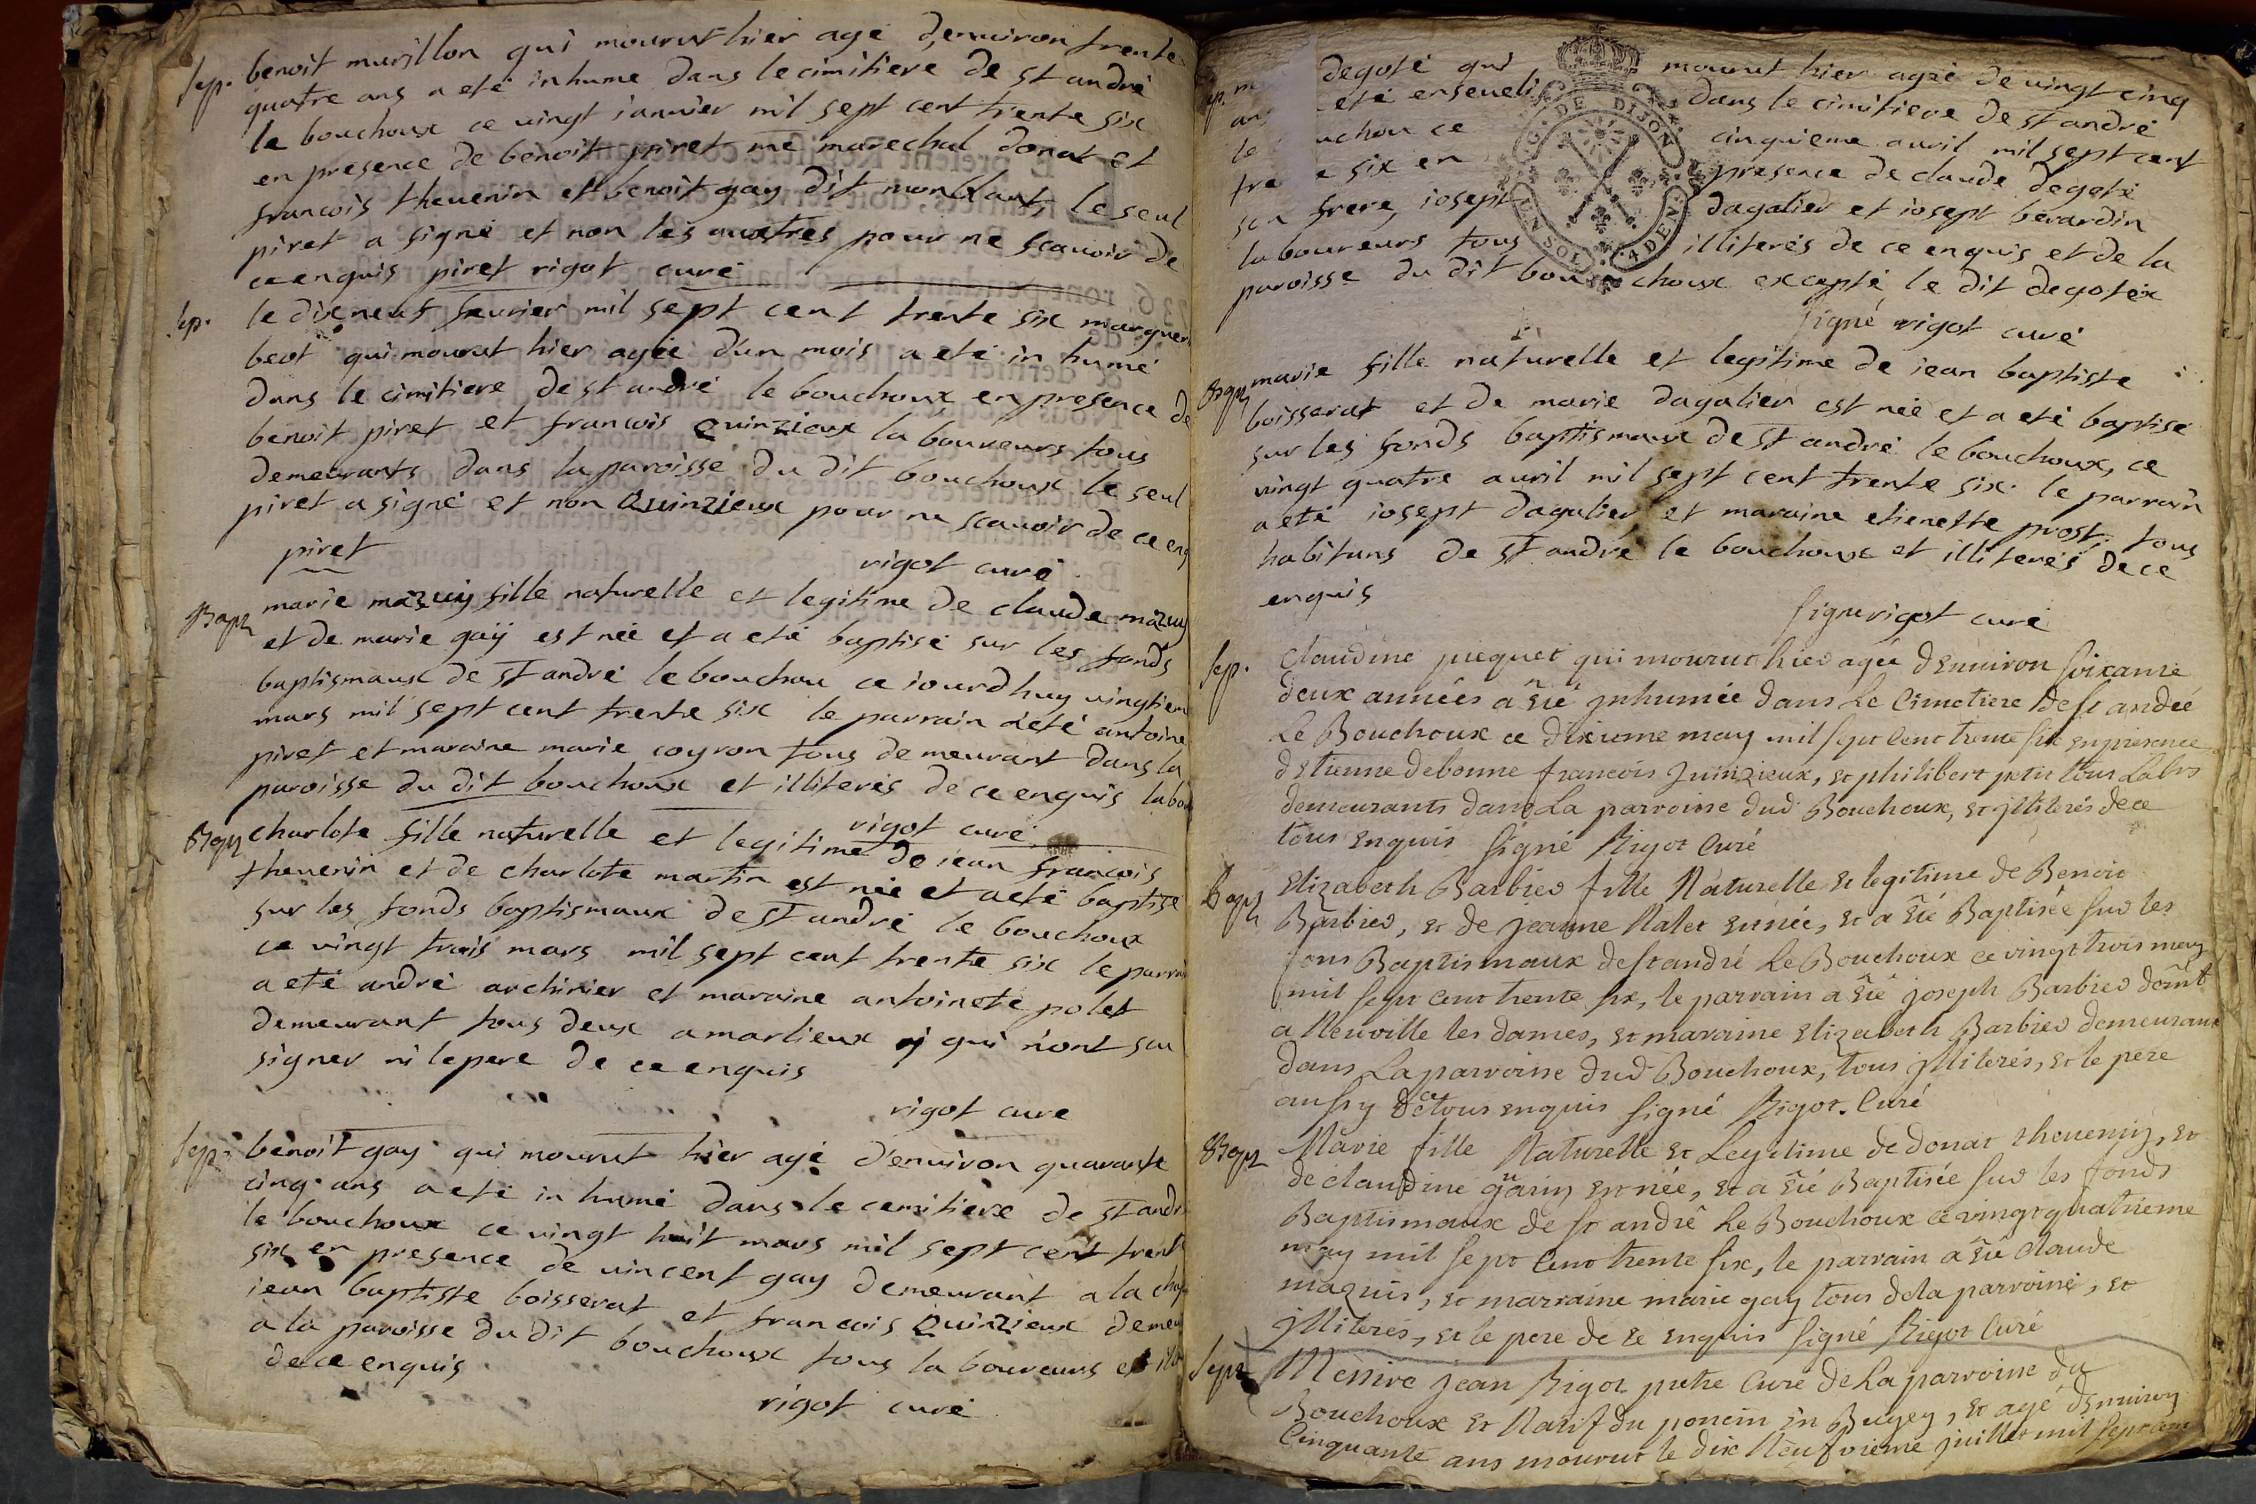 Sep. benoit murillon qui mourut hier agé d'environ trente
quatre ans a eté inhume dans le cimitiere de st andré
le bouchoux ce vingt ianvier mil sept cent trente six
en presence de benoit piret me marechal donat et
francois thevenin et benoit gay dit monblant, le seul
piret a signé et non les auttres pour ne scavoir de
ce enquis piret rigot curé
Sep. le dixneuf fevrier mil sept cent trente six marguer
beot qui mourut hier agée d'un mois a eté in humé
dans le cimitiere de st andré le bouchoux en presence de
benoit piret et francois Quinzieux laboureurs tous
demeurants dans la paroisse du dit bouchoux le seul
piret a signé et non Quinzieux pour ne scavoir de ce enq
piret rigot curé
Bapt marie mazuy fille naturelle et legitime de claude mazuy
et de marie gaÿ est née et a eté baptisé sur les fonds
baptismaux de st andré le bouchou ce iourdhuy vingtiem
mars mil sept cent trente six le parrain a eté antoine
piret et maraine marie coyron tous demeurant dans la
paroisse du dit bouchoux et illiterés de ce enquis labou
rigot curé
Bapt charlote fille naturelle et legitime de iean francois
thevenin et de charlote martin est née et a eté baptisé
sur les fonds baptismaux de st andré le bouchoux
ce vingt trois mars mil sept cent trente six le parrai
a eté andré archirier et maraine antoinete polet
demeurant tous deux a marlieux qui n'ont scu
signer ni le pere de ce enquis
rigot curé
Sep. benoit gay qui mourut hier agé d'environ quarante
cinq ans a eté in humé dans le cemitiere de st andr
le bouchoux ce vingt huit mars mil sept cent trent
six en presence de vincent gay demeurant a la cha
iean baptiste boisserat et francois Quinzieux demeu
a la paroisse du dit bouchoux tous laboureurs et ill
de ce enquis
rigot curé
ep. m degoté qui mourut hier agée de vingt cinq
an eté enseveli dans le cimitiere de st andré
le uchou ce cinquieme avril mil sept cent
tre e six en presence de claude degoté
son frere, iosept dagalier et iosept berardin
laboureurs tous illiterés de ce enquis et de la
paroisse du dit bouchoux excepté le dit degotéx
signé rigot curé
G. DE DIJON
Bapt marie fille naturelle et legitime de iean baptiste
boisserat et de marie dagalier est née et a eté baptisé
sur les fonds baptismaux de st andré le bouchoux, ce
vingt quatre avril mil sept cent trente six. le parrain
a eté iosept dagalier et maraine etienette prost. tous
habitans de st andré le bouchoux et illiterés de ce
enquis
signé rigot curé
Sep. Claudine puquet qui mourut hier agée d'Environ soixante
deux années a Eté jnhumée dans Le Cimetiere de st andré
Le Bouchoux ce dixieme may mil sept Cent trente six En presence
d'Etienne debonne francois Juinzieux, Et philibert petit tous Labrs
demeurants dans La parroisse dud Bouchoux, Et jlliterés de ce
tous Enquis Signé Rigot Curé
Bapt Elizabeth Barbier fille Naturelle Et legitime de Benoit
Barbier, Et de Jeanne Nalet Est née, Et a Eté Baptisée sur les
fons Baptismaux de st andré Le Bouchoux ce vingt trois may
mil sept Cent trente six, le parrain a Eté joseph Barbier domt
a Neuville les dames, Et maraine Elizabeth Barbier demeurant
dans La parroisse dud Bouchoux, tous jlliterés, Et le pere
aussy de ce tous Enquis Signé Rigot. Curé
Bapt Marie fille Naturelle Et Legitime de donat thevenin, Et
de claudine guarin Est née, Et a Eté Baptisée sur les fonds
Baptismaux de st andré Le Bouchoux ce vingt quatrieme
may mil sept Cent trente six, le parrain a Eté Claude
mazuis, Et marraine marie gay tous de la parroisse, Et
jlliterés, Et le pere de ce Enquis Signé Rigot Curé
Sept Messire Jean Rigot pretre Curé de La parroisse du
Bouchoux Et Natif du poncin En Bugey, Et agé d'Environ
Cinquante ans mourut le dix Neufvieme juillet mil sept cent